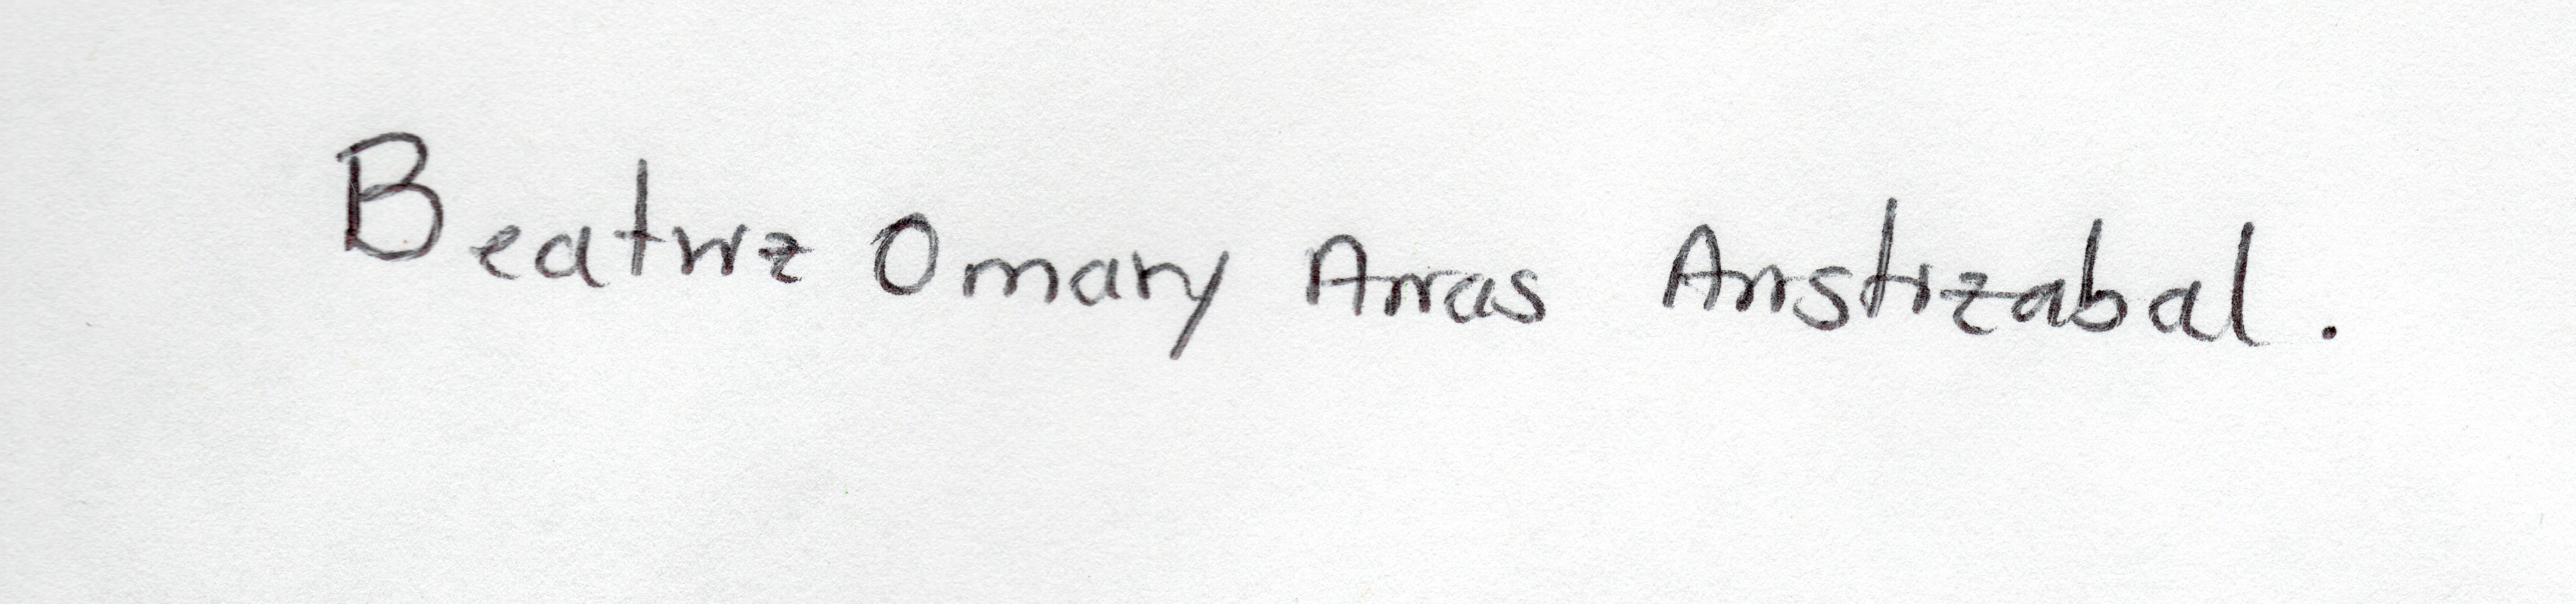 Beatriz Omary Arras Aristizabal.